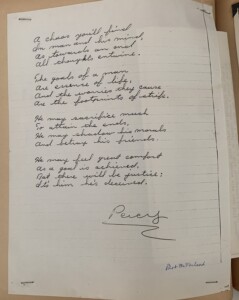 A chaos you'll find
In man and his mind,
As towards an end
All thoughts entwine.
The goals of a man
Are essence of life,
And the worries they cause
Are the footprints of strife.
He may sacrifice much
To attain the ends,
He may shadow his morals
And betray his friends.
He may feel great comfort
As a goal is achieved,
But there will be justice;
It's him he's deceived.
Percy